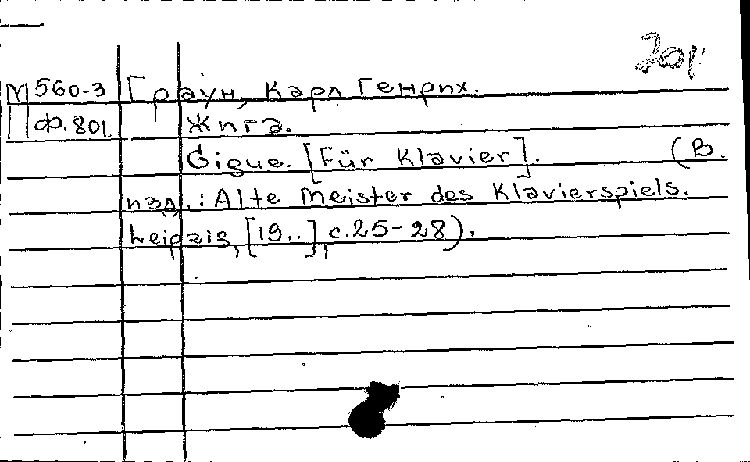 301
М 560-3 Граун, Карл Генрих.
П ф.801 Жига.
Gigue. [Für Klavier]. (В
изд.: Alte Meister des Klavierspiels.
Leipzig, [19..], с.25-28).